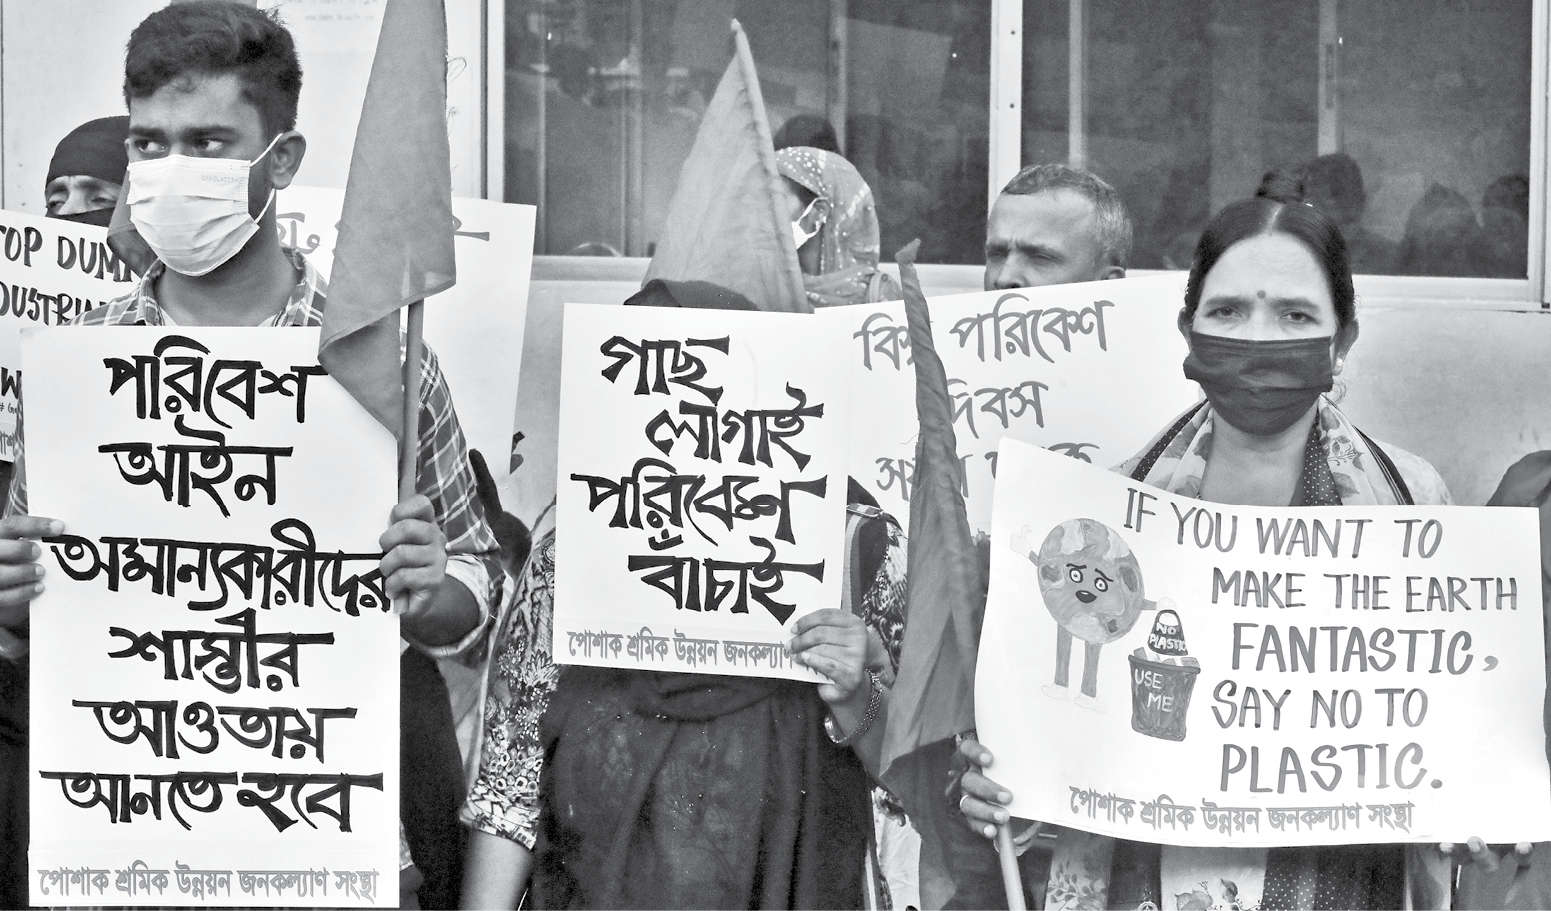 TOP DUM
DUSTRI
পরিবেশ
আইন
অমান্যকারীদের
শাস্তীর
আওতায়
আনতে হবে
পোশাক শ্রমিক উন্নয়ন জনকল্যাণ সংস্থা
গাছ
লাগাই
পরিবেশ
বাঁচাই
পোশাক শ্রমিক উন্নয়ন জনকল্যাণ
পরিবেশ
দিবস
IF YOU WANT TO
MAKE THE EARTH
FANTASTIC,
SAY NO TO
PLASTIC.
NO
PLASTIC
USE
ME
পোশাক শ্রমিক উন্নয়ন জনকল্যাণ সংস্থা